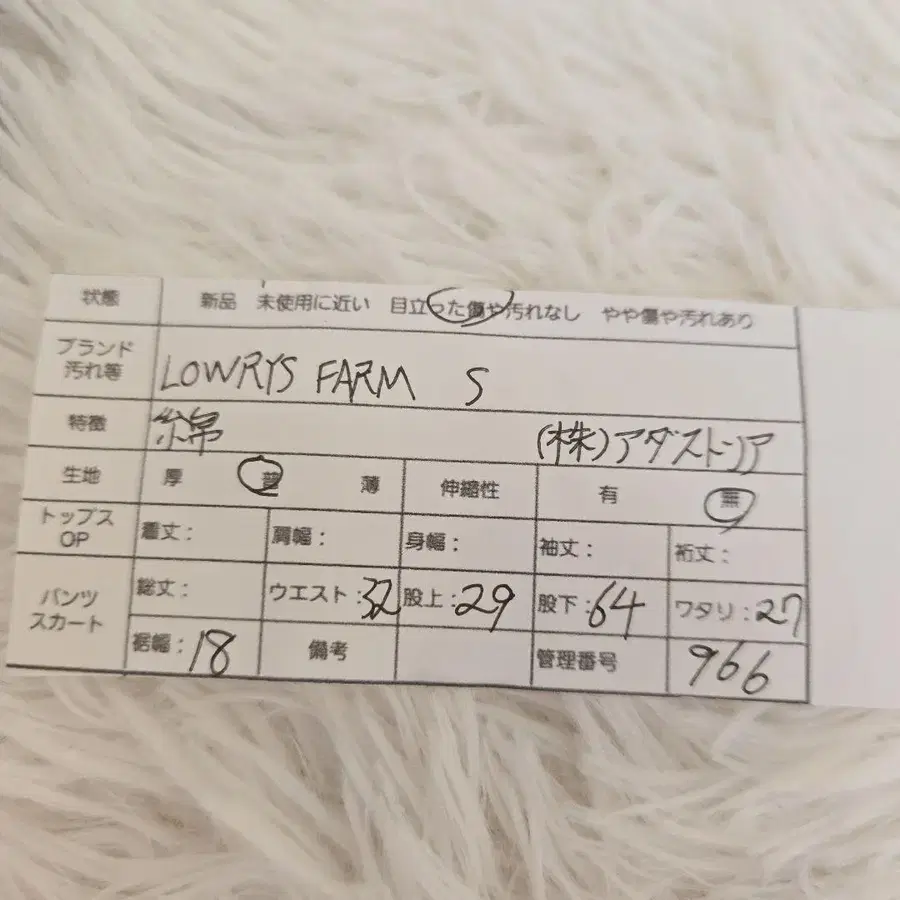 状態 新品 未使用に近い 目立った傷や汚れなし やや傷や汚れあり
ブランド 汚れ等 LOWRYS FARM S
特徴 綿 (株)アダストリア
生地 厚 普 薄 伸縮性 有 無
トップス OP 着丈: 肩幅: 身幅: 袖丈: 裄丈:
パンツ スカート 総丈: ウエスト:32 股上:29 股下:64 ワタリ:27
裾幅:18 備考 管理番号 966